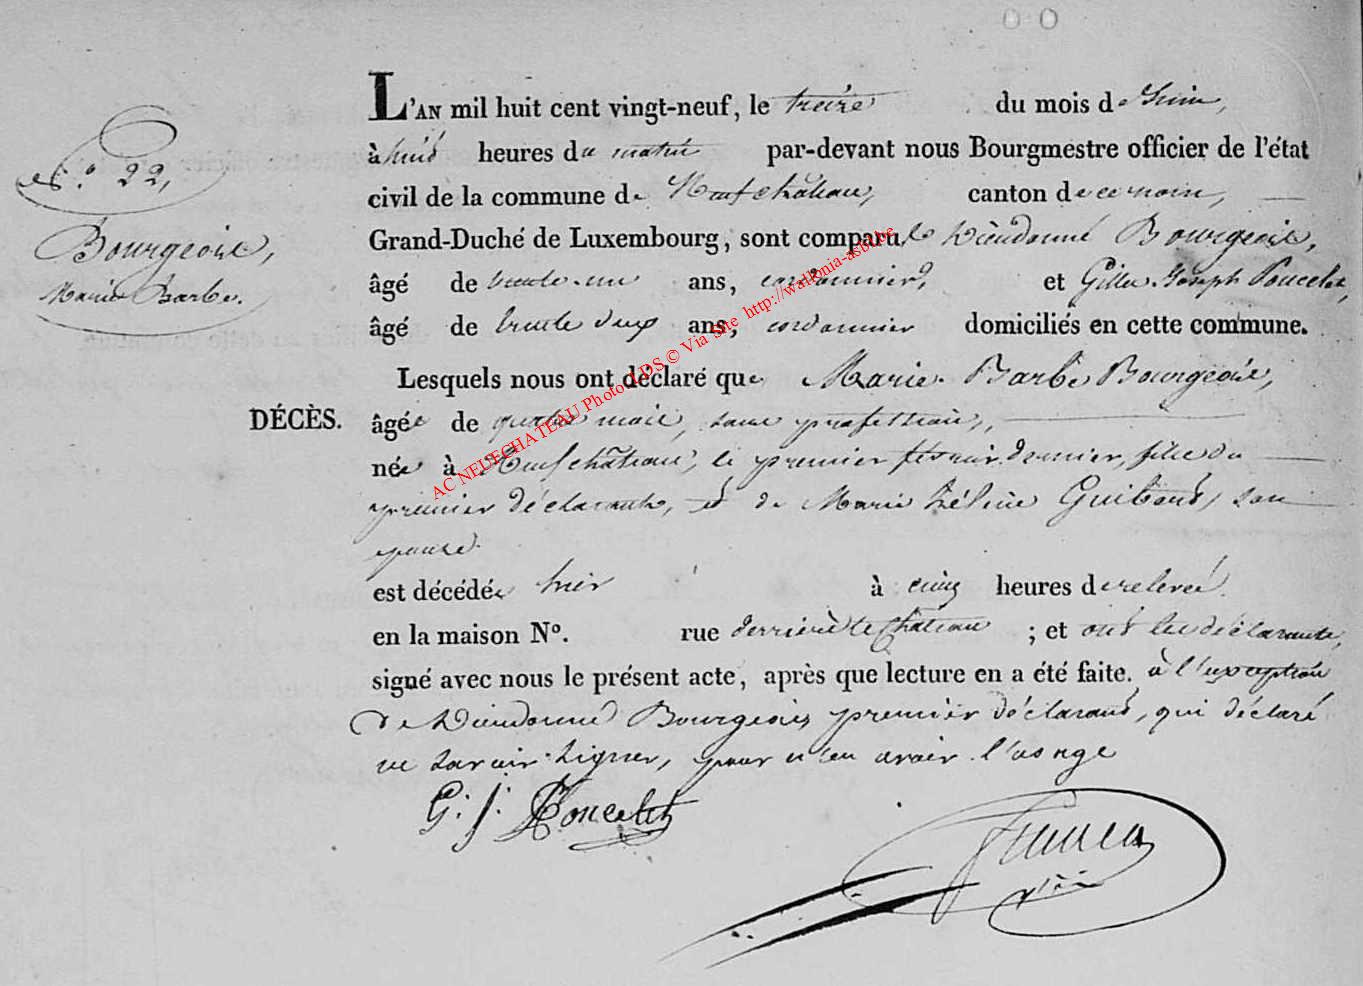 N.° 22,
Bourgeois,
Marie Barbe.
L'AN mil huit cent vingt-neuf, le treize du mois de Juin,
à huit heures du matin par-devant nous Bourgmestre officier de l'état
civil de la commune de Neufchâteau, canton de ce nom,
Grand-Duché de Luxembourg, sont comparu Dieudonné Bourgeois,
âgé de trente-un ans, cordonnier, et Gilles Joseph Poncelet,
âgé de trente deux ans, cordonnier domiciliés en cette commune.
Lesquels nous ont déclaré que Marie Barbe Bourgeois,
DÉCÈS. âgée de quatre mois, sans profession,
née à Neufchâteau, le premier février dernier, fille du
premier déclarant, et de Marie Hélène Guibard, son
épouse.
est décédée hier à cinq heures de relevée.
en la maison N°. rue derrière le Château ; et ont les déclarants,
signé avec nous le présent acte, après que lecture en a été faite. à l'exception
de Dieudonné Bourgeois premier déclarant, qui déclaré
ne savoir signer, pour n'en avoir l'usage
G. J. Poncelet
AC NEUFCHATEAU Photo LDS © Via Site http://wallonia-asbl.be